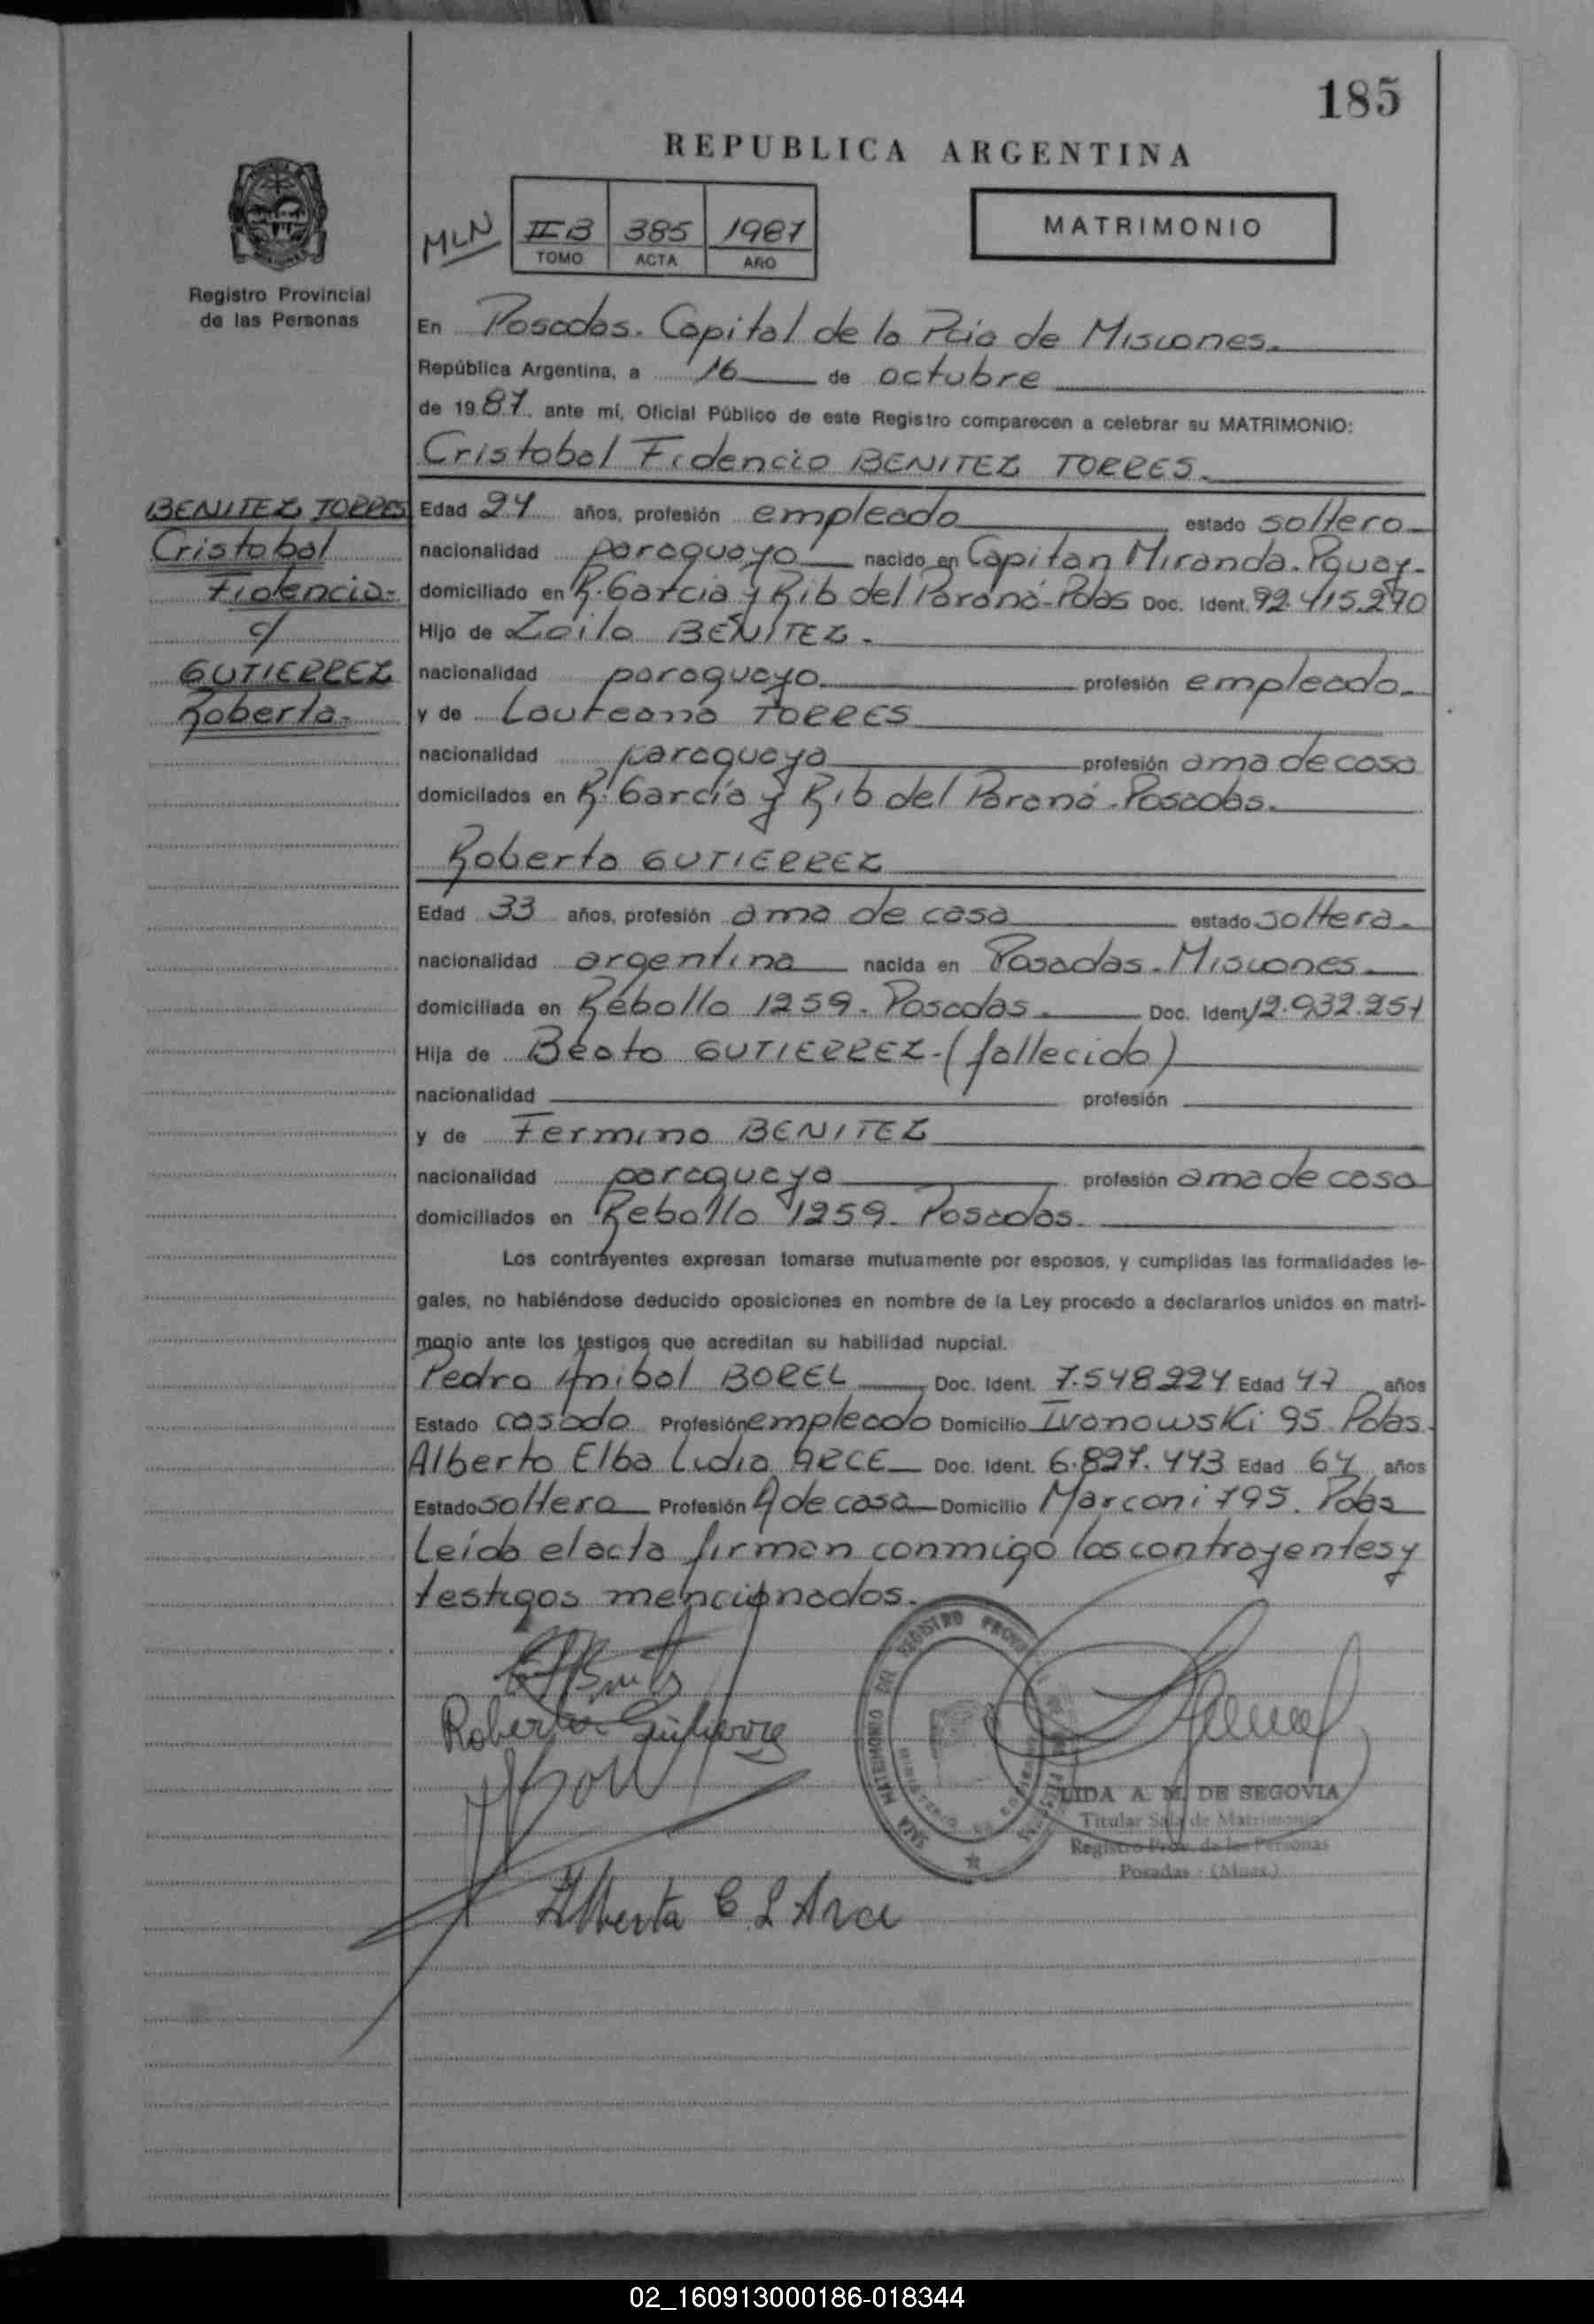 185
REPUBLICA ARGENTINA
MLN
II B 385 1987
TOMO ACTA AÑO
MATRIMONIO
Registro Provincial
de las Personas
En Posadas. Capital de la Pcia de Misiones.
República Argentina, a 16 de octubre
de 1987. ante mí, Oficial Público de este Registro comparecen a celebrar su MATRIMONIO:
Cristobal Fidencio BENITEZ TORRES.
BENITEZ TORRES
Cristobal
Fidencio-
c/
GUTIERREZ
Roberta-
Edad 24 años, profesión empleado estado soltero
nacionalidad paraguayo nacido en Capitan Miranda. Pguay-
domiciliado en R. Garcia y Rib del Paraná-Pdas Doc. Ident. 92.415.270
Hijo de Zoilo BENITEZ.
nacionalidad paraguayo. profesión empleado.
y de Laureana TORRES
nacionalidad paraguaya profesión ama de casa
domiciliados en R. García y Rib del Paraná. Posadas.
Roberta GUTIERREZ
Edad 33 años, profesión ama de casa estado soltera.
nacionalidad argentina nacida en Posadas. Misiones.
domiciliada en Rebollo 1259. Posadas. Doc. Ident. 12.932.251
Hija de Beato GUTIERREZ-(fallecido)
nacionalidad profesión
y de Fermina BENITEZ
nacionalidad paraguaya profesión ama de casa
domiciliados en Rebollo 1259. Posadas.
Los contrayentes expresan tomarse mutuamente por esposos, y cumplidas las formalidades le-
gales, no habiéndose deducido oposiciones en nombre de la Ley procedo a declararlos unidos en matri-
monio ante los testigos que acreditan su habilidad nupcial.
Pedro Anibal BOREL Doc. Ident. 7.548.224 Edad 47 años
Estado casado Profesión empleado Domicilio Ivanowski 95. Pdas.
Alberta Elba Lidia ARCE Doc. Ident. 6.827.443 Edad 64 años
Estado soltera Profesión A de casa Domicilio Marconi 795. Pdas
Leida el acta firman conmigo los contrayentes y
testigos mencionados.
Roberta Gutierrez
Alberta E L Arce
SALA MATRIMONIO DEL REGISTRO PROVINCIAL DE LAS PERSONAS
MINISTERIO DE GOBIERNO
LIDA A. M. DE SEGOVIA
Titular Sala de Matrimonio
Registro Prov. de las Personas
Posadas - (Mnes.)
02_160913000186-018344